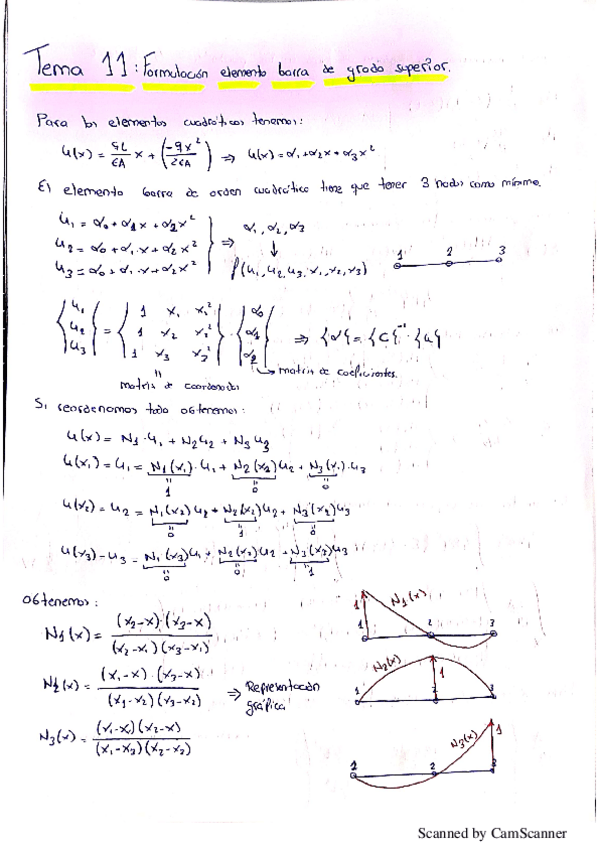 Tema 11: Formulación elemento barra de grado superior.
Para los elementos cuadráticos tenemos:
u(x) = qL/EA x + (-qx²/2EA) ⇒ u(x) = α₁+α₂x+α₃x²
El elemento barra de orden cuadrático tiene que tener 3 nodos como mínimo.
u₁ = α₀+α₁x+α₂x²
u₂ = α₀+α₁x+α₂x²
u₃ = α₀+α₁x+α₂x²
⇒ α₁, α₂, α₃
↓
f(u₁, u₂, u₃, x₁, x₂, x₃)
1 2 3
{u₁ u₂ u₃} = {1 x₁ x₁² 1 x₂ x₂² 1 x₃ x₃²} · {α₀ α₁ α₂} ⇒ {α} = {C}⁻¹ · {u}
matriz de coeficientes.
matriz de coordenadas
Si reordenamos todo obtenemos:
u(x) = N1·u₁ + N₂u₂ + N₃u₃
u(x₁) = u₁ = N₁(x₁)·u₁ + N₂(x₂)u₂ + N₃(x₁)·u₃
1 0 0
u(x₂) = u₂ = N₁(x₂)u₂ + N₂(x₂)u₂ + N₃(x₂)u₃
0 1 0
u(x₃) - u₃ = N₁(x₃)u₁ + N₂(x₂)u₂ + N₃(x₃)u₃
0 0 1
Obtenemos:
N1(x) = (x₂-x)·(x₃-x) / (x₂-x₁)(x₃-x₁)
1 N1(x) 2 3
N2(x) = (x₁-x)·(x₃-x) / (x₁-x₂)(x₃-x₂) ⇒ Representación gráfica
1 N₂(x) 1 2 3
N₃(x) = (x₁-x)(x₂-x) / (x₁-x₃)(x₂-x₃)
1 2 N₃(x) 1 3
Scanned by CamScanner